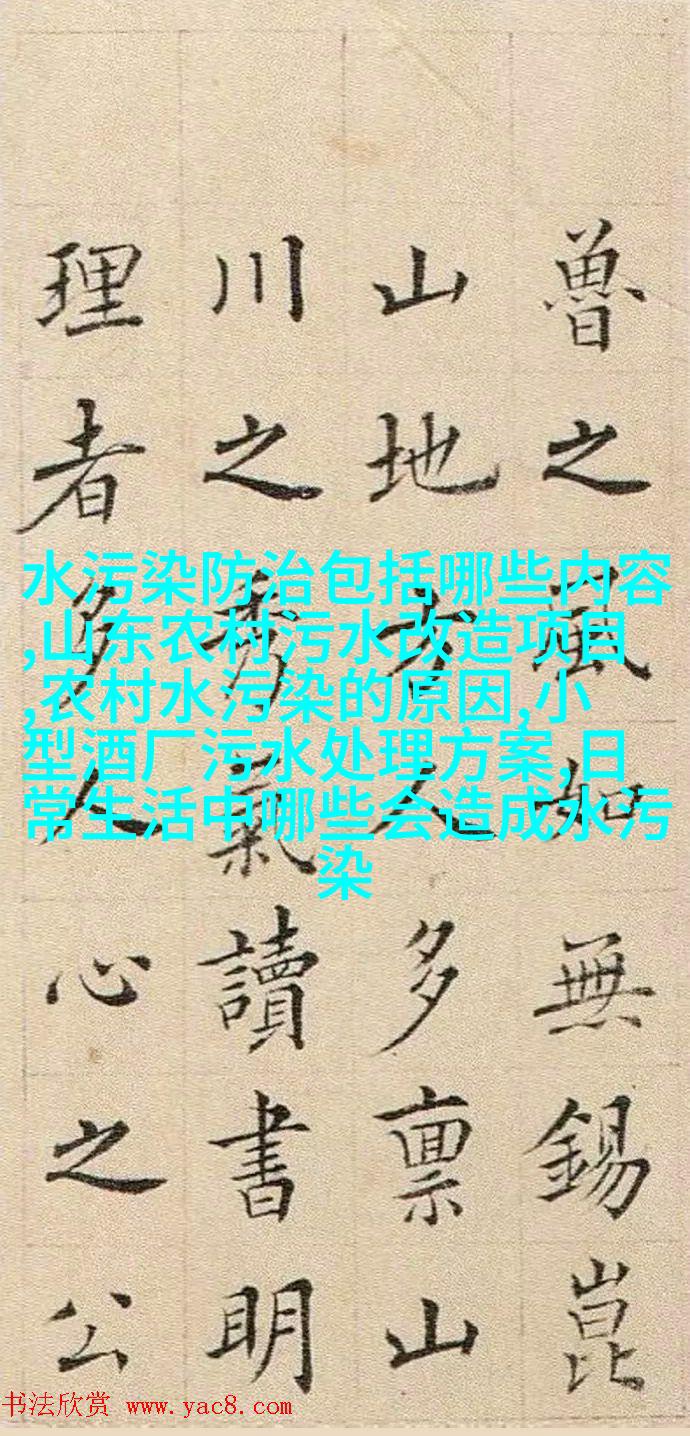 魯之風如無錫崑
山地方人多禀山
川之秀氣讀書明
理者多人心之公
水污染防治包括哪些内容
,山东农村污水改造项目
,农村水污染的原因,小
型酒厂污水处理方案,日
常生活中哪些会造成水污
染
书法欣赏 www.yac8.com